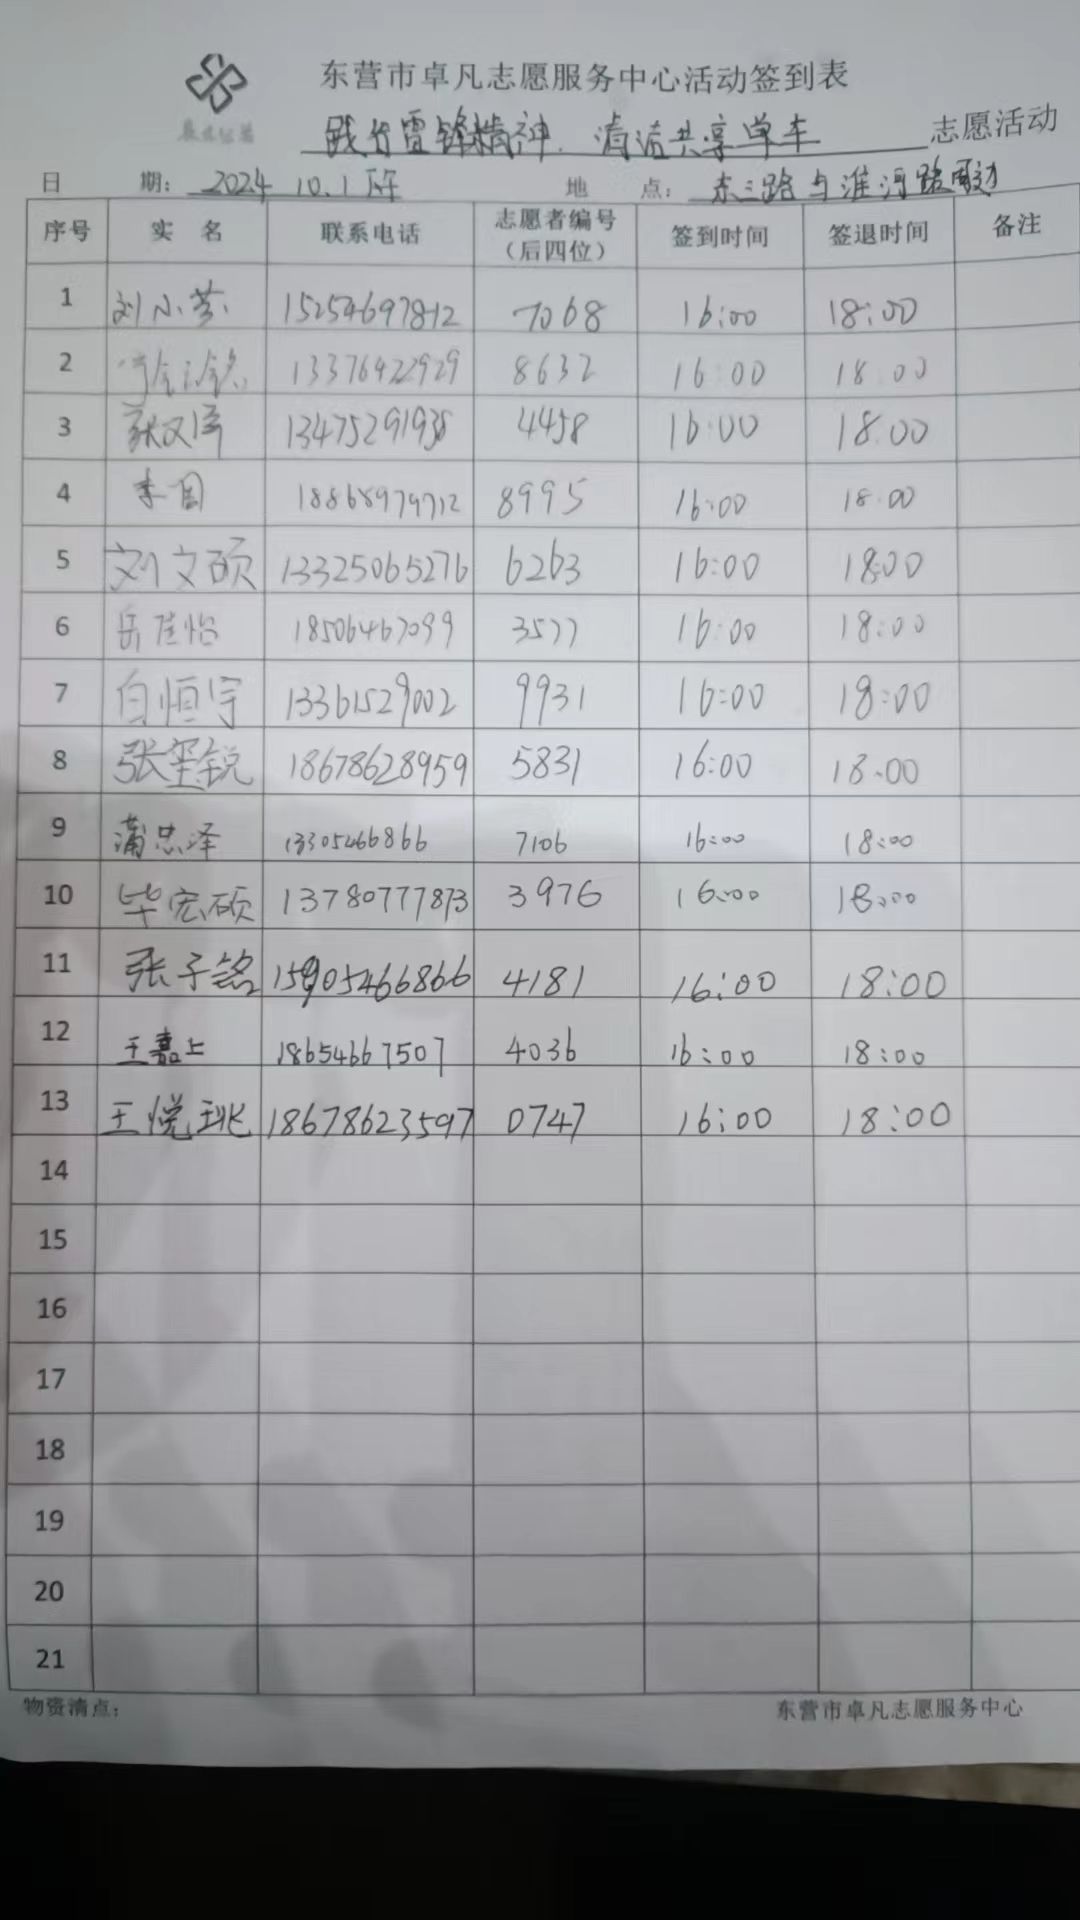 东营市卓凡志愿服务中心活动签到表
践行雷锋精神、清洁共享单车 志愿活动
日 期: 2024 10.1 下午 地 点: 东三路与淮河路周边
序号 实 名 联系电话 志愿者编号（后四位） 签到时间 签退时间 备注
1 刘小 15254697812 7068 16:00 18:00
2 13376422929 8632 16:00 18:00
3 张文泽 13475291938 4458 16:00 18:00
4 李 18868979712 8995 16:00 18:00
5 刘文硕 13325065276 6263 16:00 18:00
6 岳佳怡 18506467099 3577 16:00 18:00
7 白恒宇 13361529002 9931 16:00 18:00
8 张玺锐 18678628959 5831 16:00 18:00
9 蒲忠泽 1330546 6866 7106 16:00 18:00
10 毕宏硕 13780777873 3976 16:00 18:00
11 张子铭 15905466866 4181 16:00 18:00
12 王嘉上 18654667507 4036 16:00 18:00
13 王悦珧 18678623597 0747 16:00 18:00
14
15
16
17
18
19
20
21
物资清点: 东营市卓凡志愿服务中心